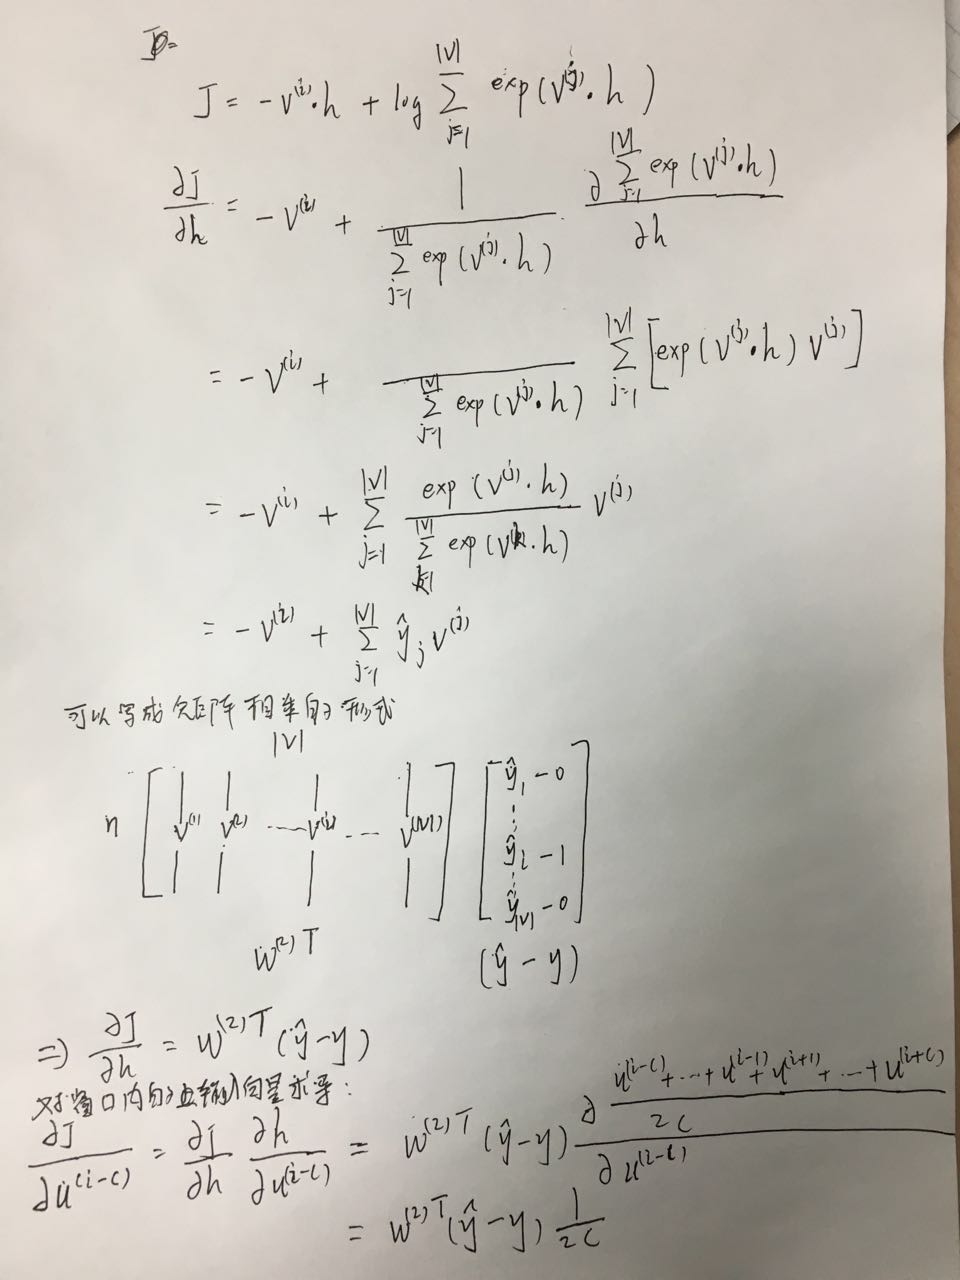 J = -v^{(i)}·h + log \sum_{j=1}^{|V|} exp(v^{(j)}·h)
\frac{∂J}{∂h} = -v^{(i)} + \frac{1}{\sum_{j=1}^{|V|} exp(v^{(j)}·h)} · \frac{∂\sum_{j=1}^{|V|} exp(v^{(j)}·h)}{∂h}
= -v^{(i)} + \frac{}{\sum_{j=1}^{|V|} exp(v^{(j)}·h)} \sum_{j=1}^{|V|} [exp(v^{(j)}·h) v^{(j)}]
= -v^{(i)} + \sum_{j=1}^{|V|} \frac{exp(v^{(j)}·h)}{\sum_{k=1}^{|V|} exp(v^{(k)}·h)} v^{(j)}
= -v^{(i)} + \sum_{j=1}^{|V|} ŷ_j v^{(j)}
可以写成矩阵相乘的形式
|V|
n [v^{(1)} v^{(2)} ... v^{(i)} ... v^{(|V|)}] [ŷ_1 - 0 ⋮ ŷ_i - 1 ⋮ ŷ_{|V|} - 0]
W^{(2)T} (ŷ - y)
⇒ \frac{∂J}{∂h} = W^{(2)T} (ŷ - y)
对窗口内的输入向量求导:
\frac{∂J}{∂u^{(i-C)}} = \frac{∂J}{∂h} \frac{∂h}{∂u^{(i-C)}} = W^{(2)T} (ŷ - y) \frac{∂\frac{u^{(i-C)} + ... + u^{(i-1)} + u^{(i+1)} + ... + u^{(i+C)}}{2C}}{∂u^{(i-C)}}
= W^{(2)T} (ŷ - y) \frac{1}{2C}